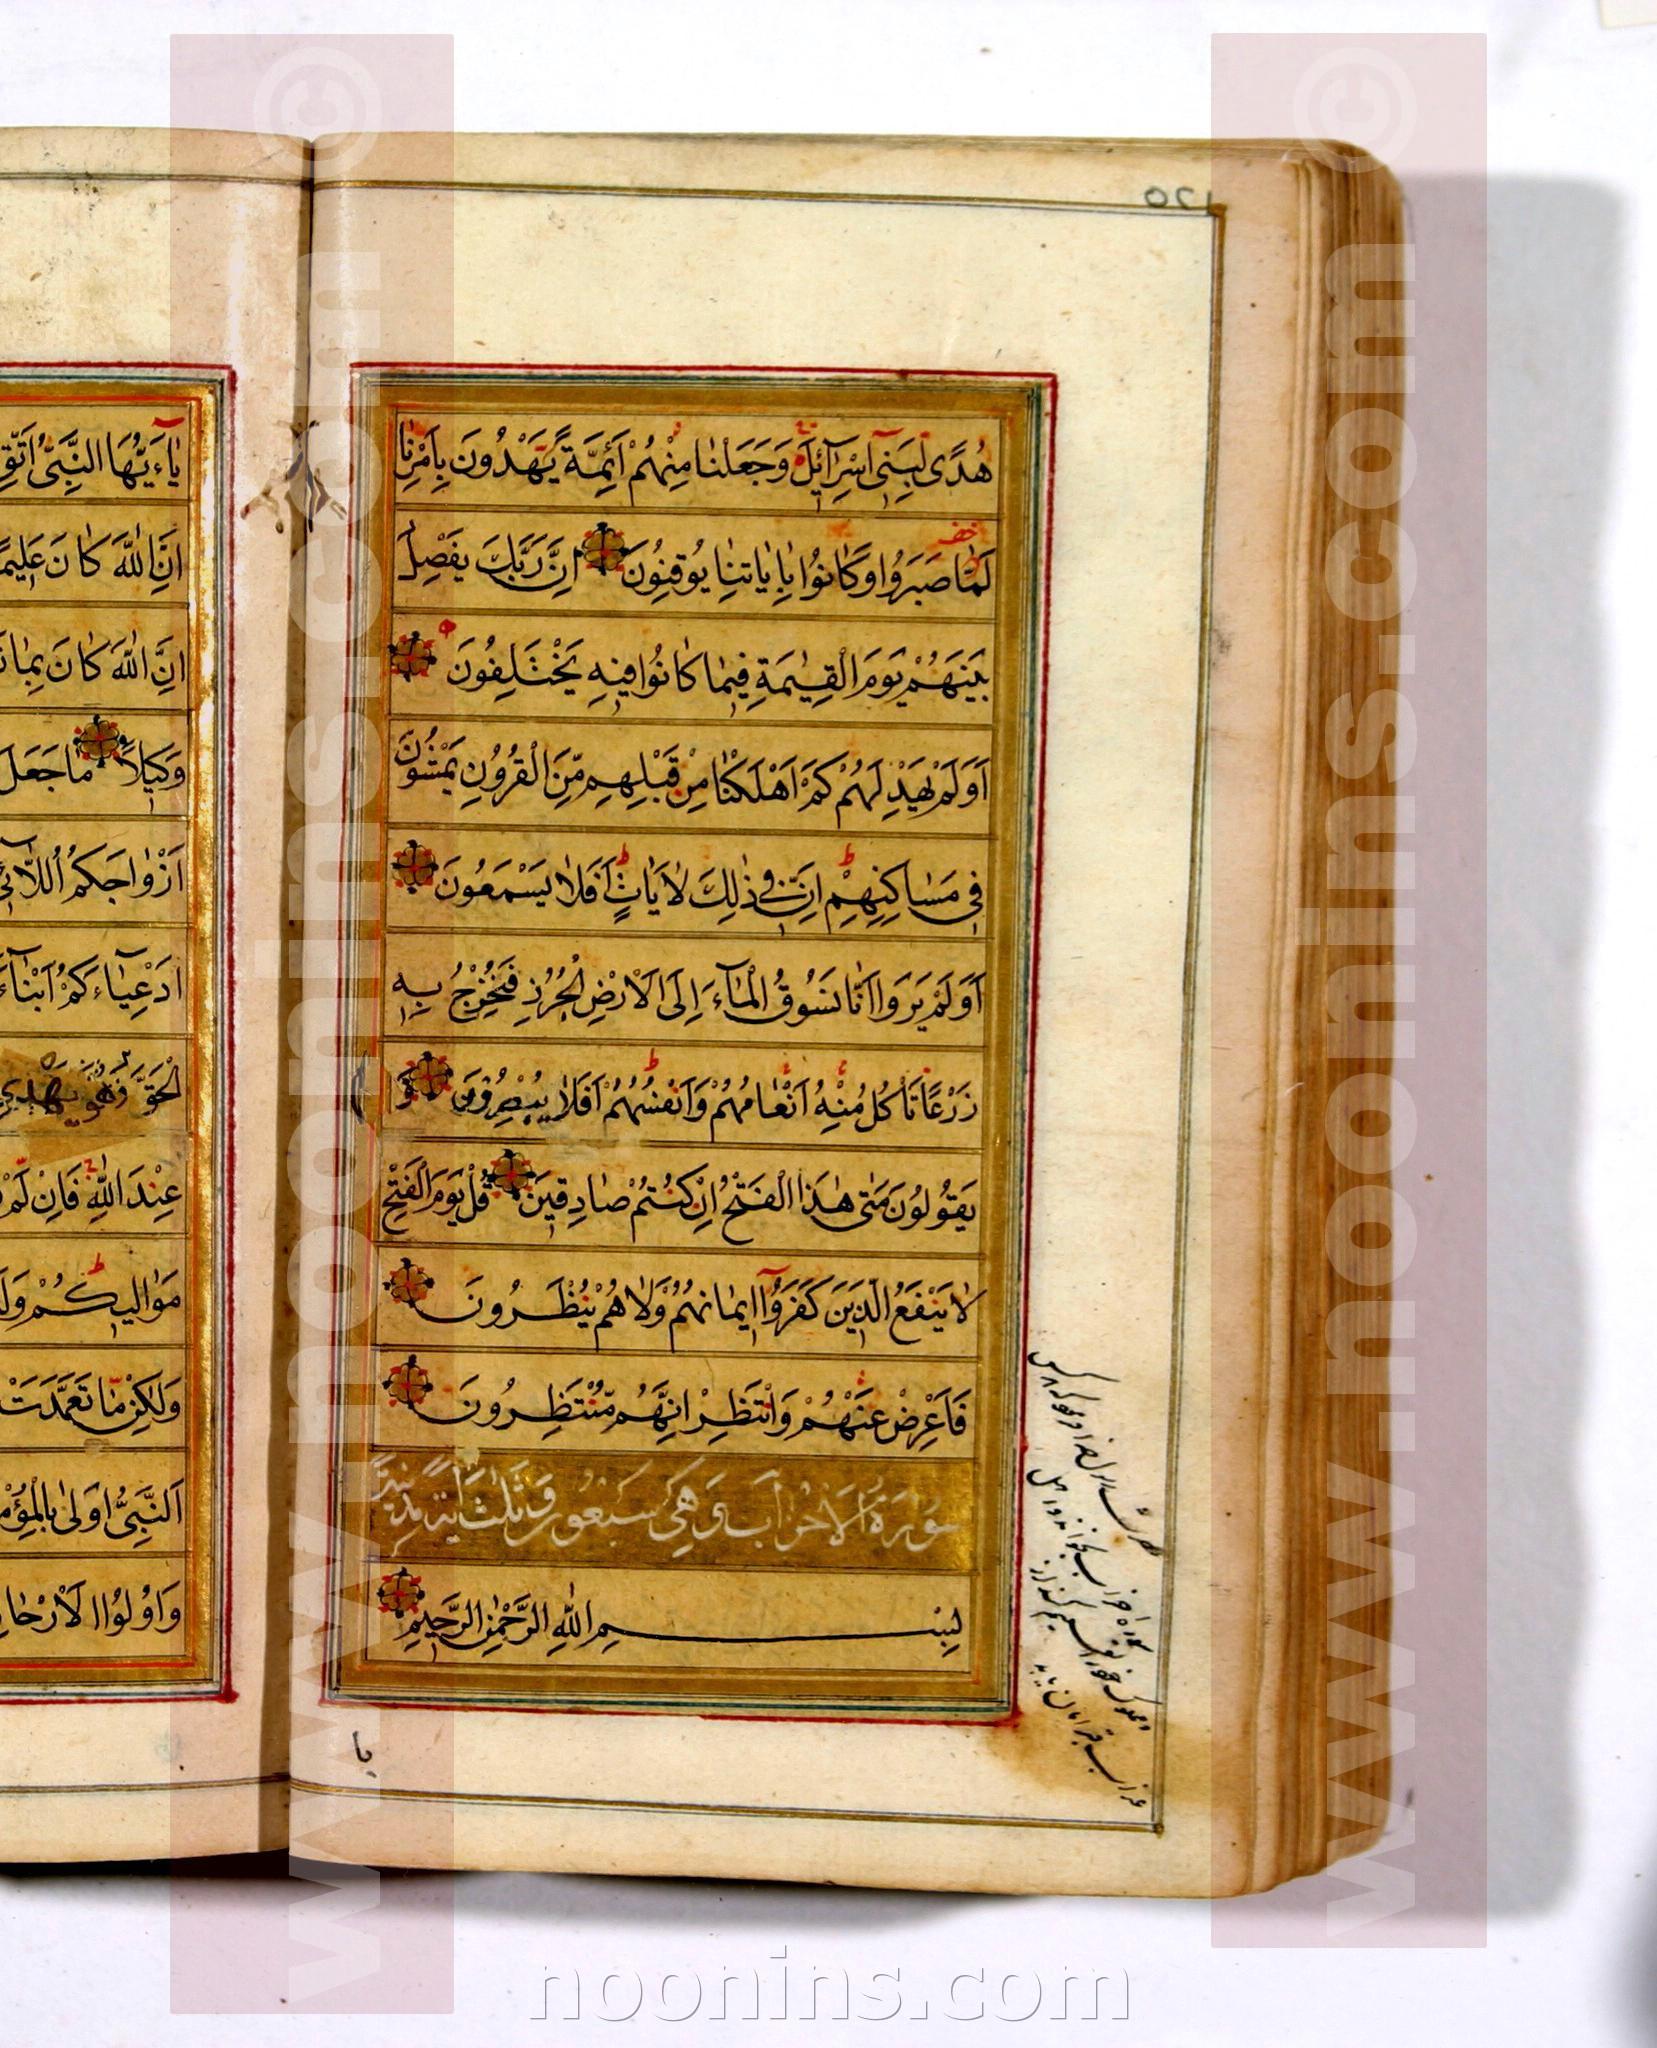 هُدًى لِبَنِي اِسْرَآئِلَ وَجَعَلْنَا مِنْهُمْ اَئِمَّةً يَهْدُونَ بِاَمْرِنَا
لَمَّا صَبَرُوا وَكَانُوا بِاٰيَاتِنَا يُوقِنُونَ اِنَّ رَبَّكَ يَفْصِلُ
بَيْنَهُمْ يَوْمَ الْقِيٰمَةِ فِيمَا كَانُوا فِيهِ يَخْتَلِفُونَ
اَوَلَمْ يَهْدِ لَهُمْ كَمْ اَهْلَكْنَا مِنْ قَبْلِهِمْ مِنَ الْقُرُونِ يَمْشُونَ
فِي مَسَاكِنِهِمْ اِنَّ فِي ذٰلِكَ لَاٰيَاتٍ اَفَلَا يَسْمَعُونَ
اَوَلَمْ يَرَوْا اَنَّا نَسُوقُ الْمَآءَ اِلَى الْاَرْضِ الْجُرُزِ فَنُخْرِجُ بِهِ
زَرْعًا تَاْكُلُ مِنْهُ اَنْعَامُهُمْ وَاَنْفُسُهُمْ اَفَلَا يُبْصِرُونَ وَ
يَقُولُونَ مَتٰى هٰذَا الْفَتْحُ اِنْ كُنْتُمْ صَادِقِينَ قُلْ يَوْمَ الْفَتْحِ
لَا يَنْفَعُ الَّذِينَ كَفَرُوٓا اِيمَانُهُمْ وَلَا هُمْ يُنْظَرُونَ
فَاَعْرِضْ عَنْهُمْ وَانْتَظِرْ اِنَّهُمْ مُنْتَظِرُونَ
سُورَةُ الْاَحْزَابِ وَهِيَ سَبْعُونَ وَثَلٰثَ اٰيَة
بِسْمِ اللّٰهِ الرَّحْمٰنِ الرَّحِيمِ
يا
يَآءَيُّهَا النَّبِيُّ اتَّقِ
اِنَّ اللّٰهَ كَانَ عَلِيمًا
اِنَّ اللّٰهَ كَانَ بِمَا
وَكِيلًا مَا جَعَلَ
اَزْوَاجَكُمُ اللَّآئِي
اَدْعِيَآءَكُمْ اَبْنَآءَ
الْحَقَّ وَهُوَ يَهْدِي
عِنْدَ اللّٰهِ فَاِنْ لَمْ
مَوَالِيكُمْ وَلَ
وَلٰكِنْ مَا تَعَمَّدَتْ
اَلنَّبِيُّ اَوْلٰى بِالْمُؤْمِ
وَاُولُوا الْاَرْحَا
www.noonins.com ©
www.noonins.com ©
noonins.com